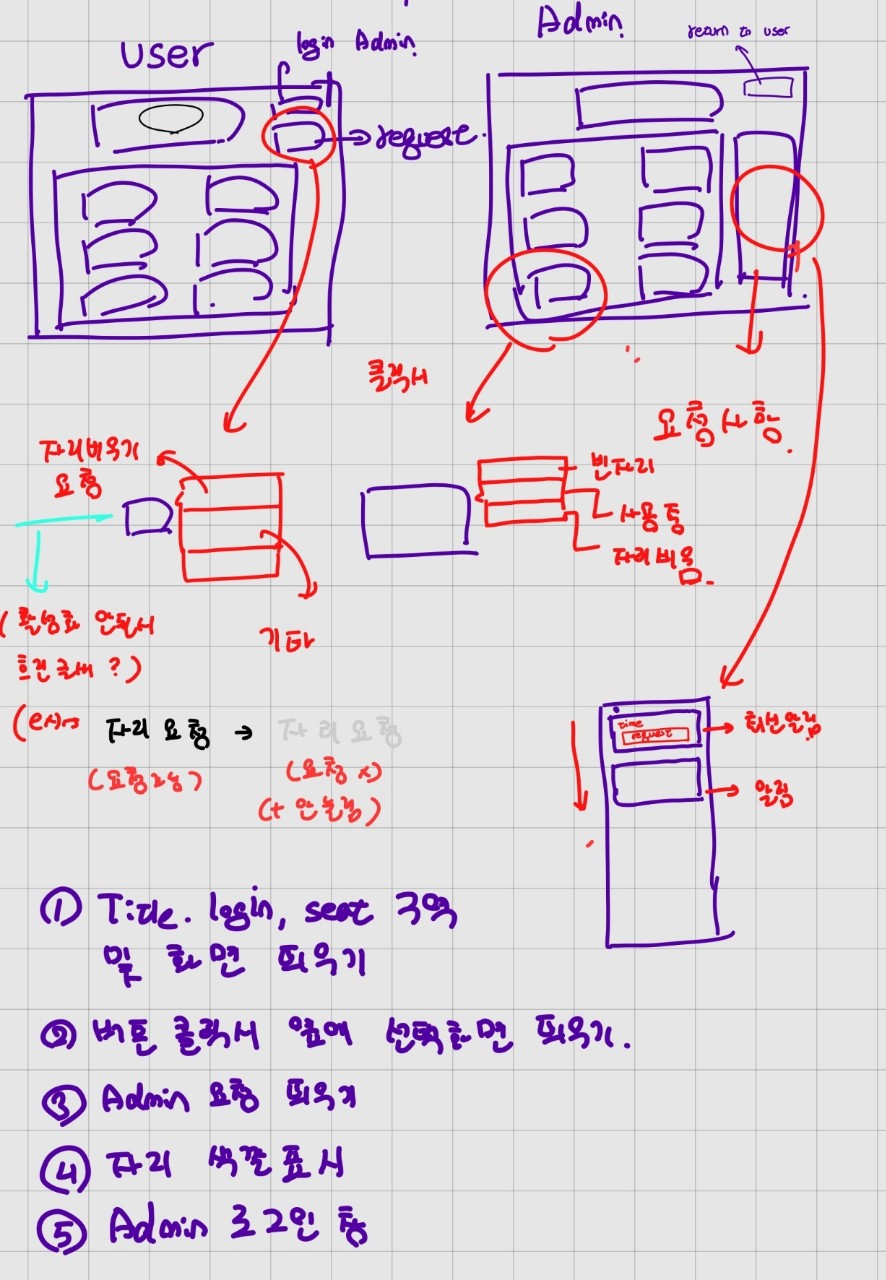 user
login Admin.
Admin.
return to user
→ request.
클릭시
요청사항.
자리비우기
요청
빈자리
사용중
자리비움
기타
(활성화 안될시
흐린글씨?)
(ex)
자리 요청 → 자리 요청
(요청가능)
(요청 x)
(+ 안눌림)
time
request
최신알림
알림
① Title. login, seat 구역
및 화면 띄우기
② 버튼 클릭시 옆에 선택화면 띄우기.
③ Admin 요청 띄우기
④ 자리 색깔 표시
⑤ Admin 로그인 창